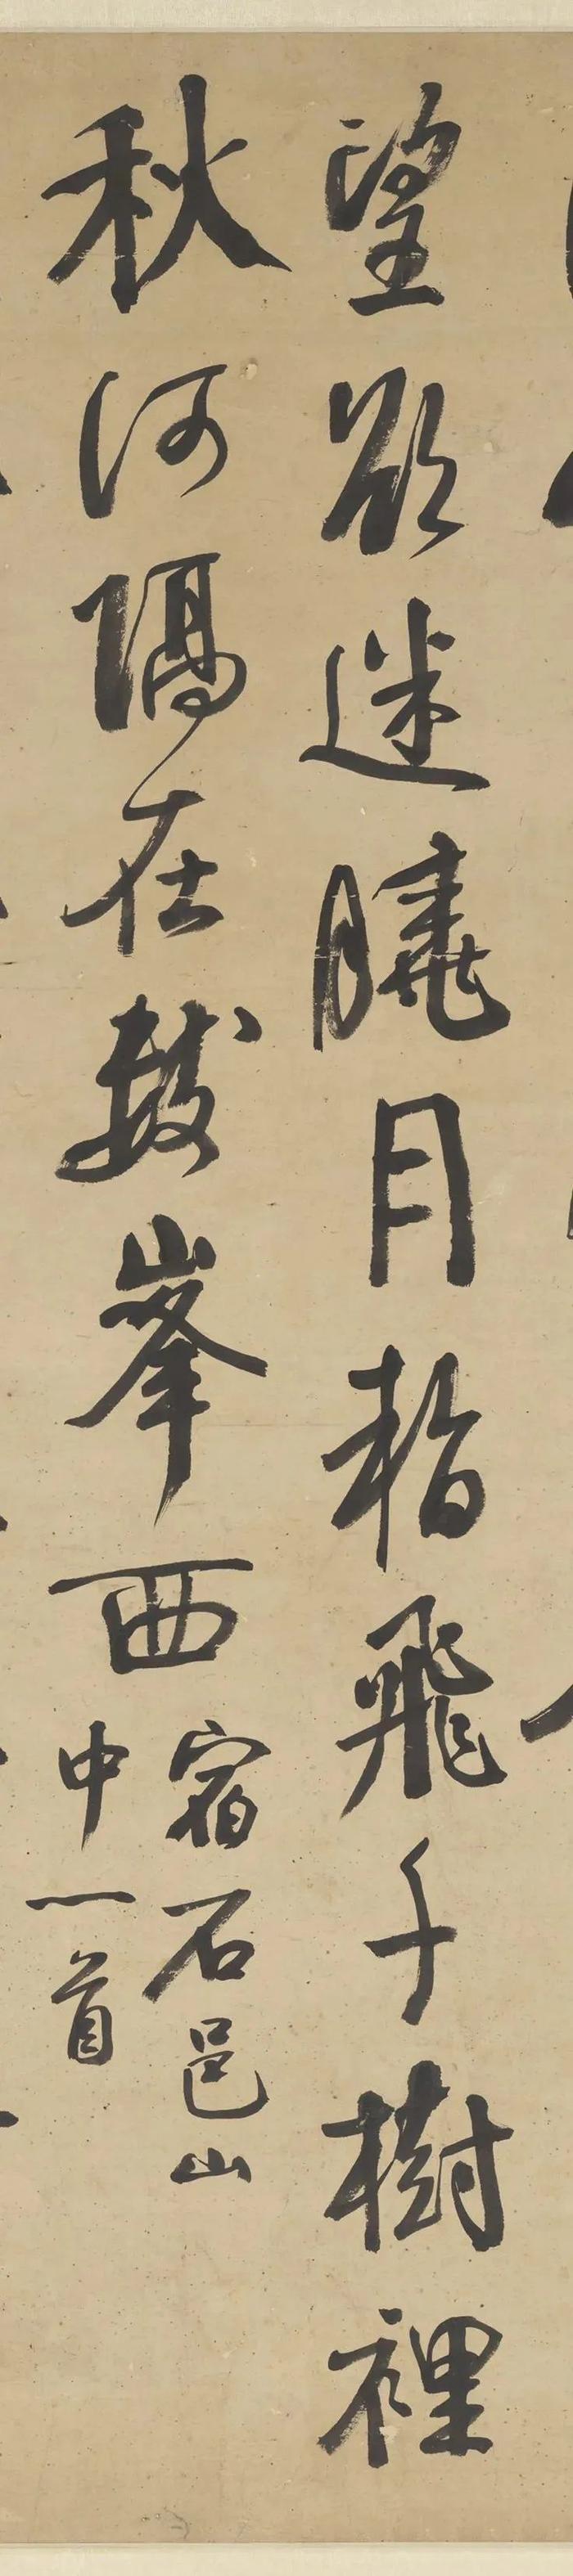 望欲迷曉月暫飛千樹裡
秋河隔在數峯西
宿石邑山
中一首